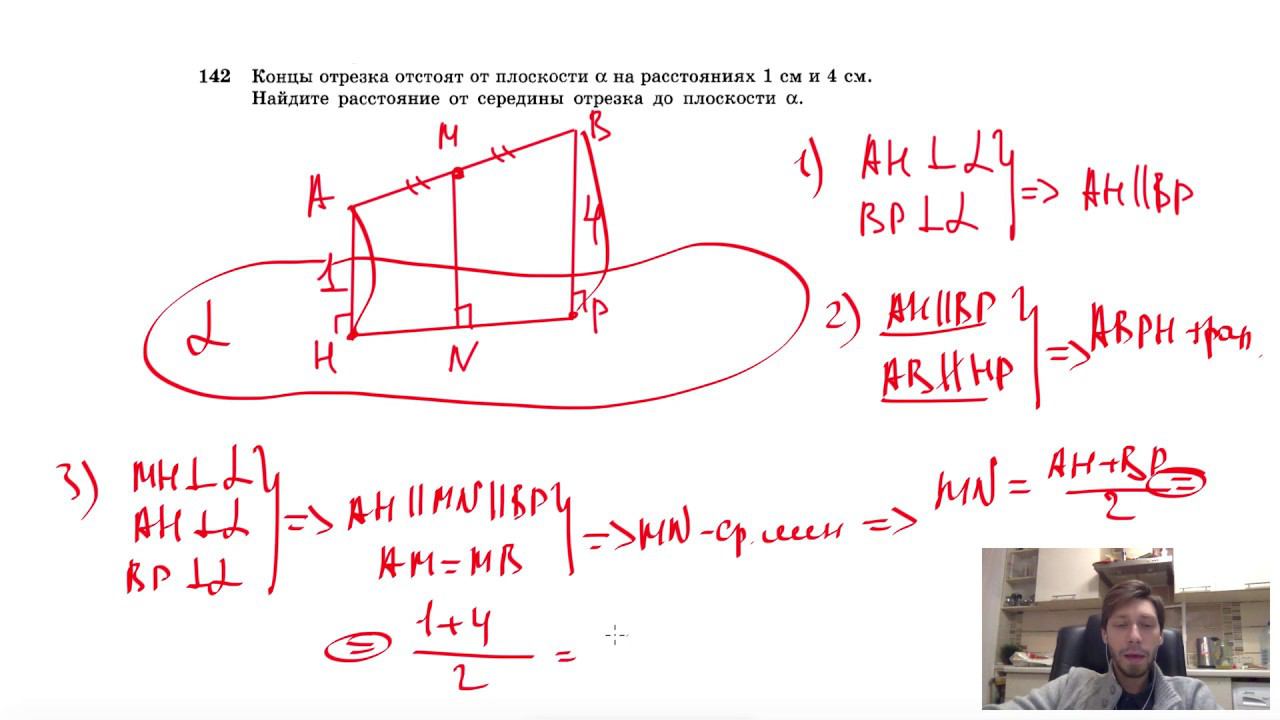 142 Концы отрезка отстоят от плоскости α на расстояниях 1 см и 4 см.
Найдите расстояние от середины отрезка до плоскости α.
M
B
A
4
1
α
H
N
P
1) AH ⊥ α
BP ⊥ α
=> AH || BP
2) AH || BP
AB ∦ HP
=> ABPH трап.
3) MH ⊥ α
AH ⊥ α
BP ⊥ α
=> AH || MN || BP
AM = MB
=> MN - ср. лин => MN = AH + BP / 2 =
= 1 + 4 / 2 =